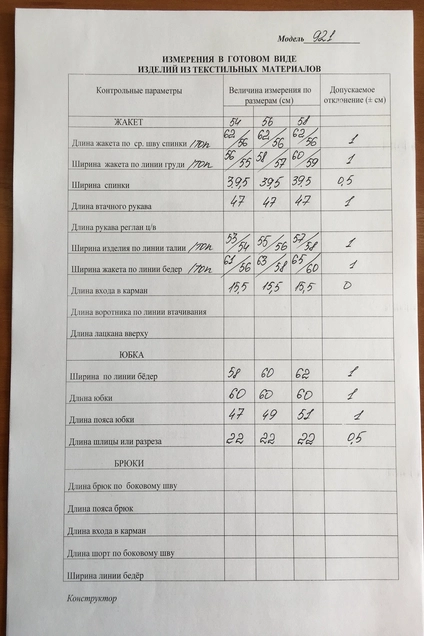 Модель 921
ИЗМЕРЕНИЯ В ГОТОВОМ ВИДЕ
ИЗДЕЛИЙ ИЗ ТЕКСТИЛЬНЫХ МАТЕРИАЛОВ
Контрольные параметры Величина измерения по размерам (см) Допускаемое отклонение (± см)
ЖАКЕТ 54 56 58
Длина жакета по ср. шву спинки /топ 62/56 62/56 62/56 1
Ширина жакета по линии груди /топ 56/55 58/57 60/59 1
Ширина спинки 39,5 39,5 39,5 0,5
Длина втачного рукава 47 47 47 1
Длина рукава реглан ц/в
Ширина изделия по линии талии /топ 53/54 55/56 57/58 1
Ширина жакета по линии бедер /топ 61/56 63/58 65/60 1
Длина входа в карман 15,5 15,5 15,5 0
Длина воротника по линии втачивания
Длина лацкана вверху
ЮБКА
Ширина по линии бёдер 58 60 62 1
Длина юбки 60 60 60 1
Длина пояса юбки 47 49 51 1
Длина шлицы или разреза 22 22 22 0,5
БРЮКИ
Длина брюк по боковому шву
Длина пояса брюк
Длина входа в карман
Длина шорт по боковому шву
Ширина линии бедёр
Конструктор